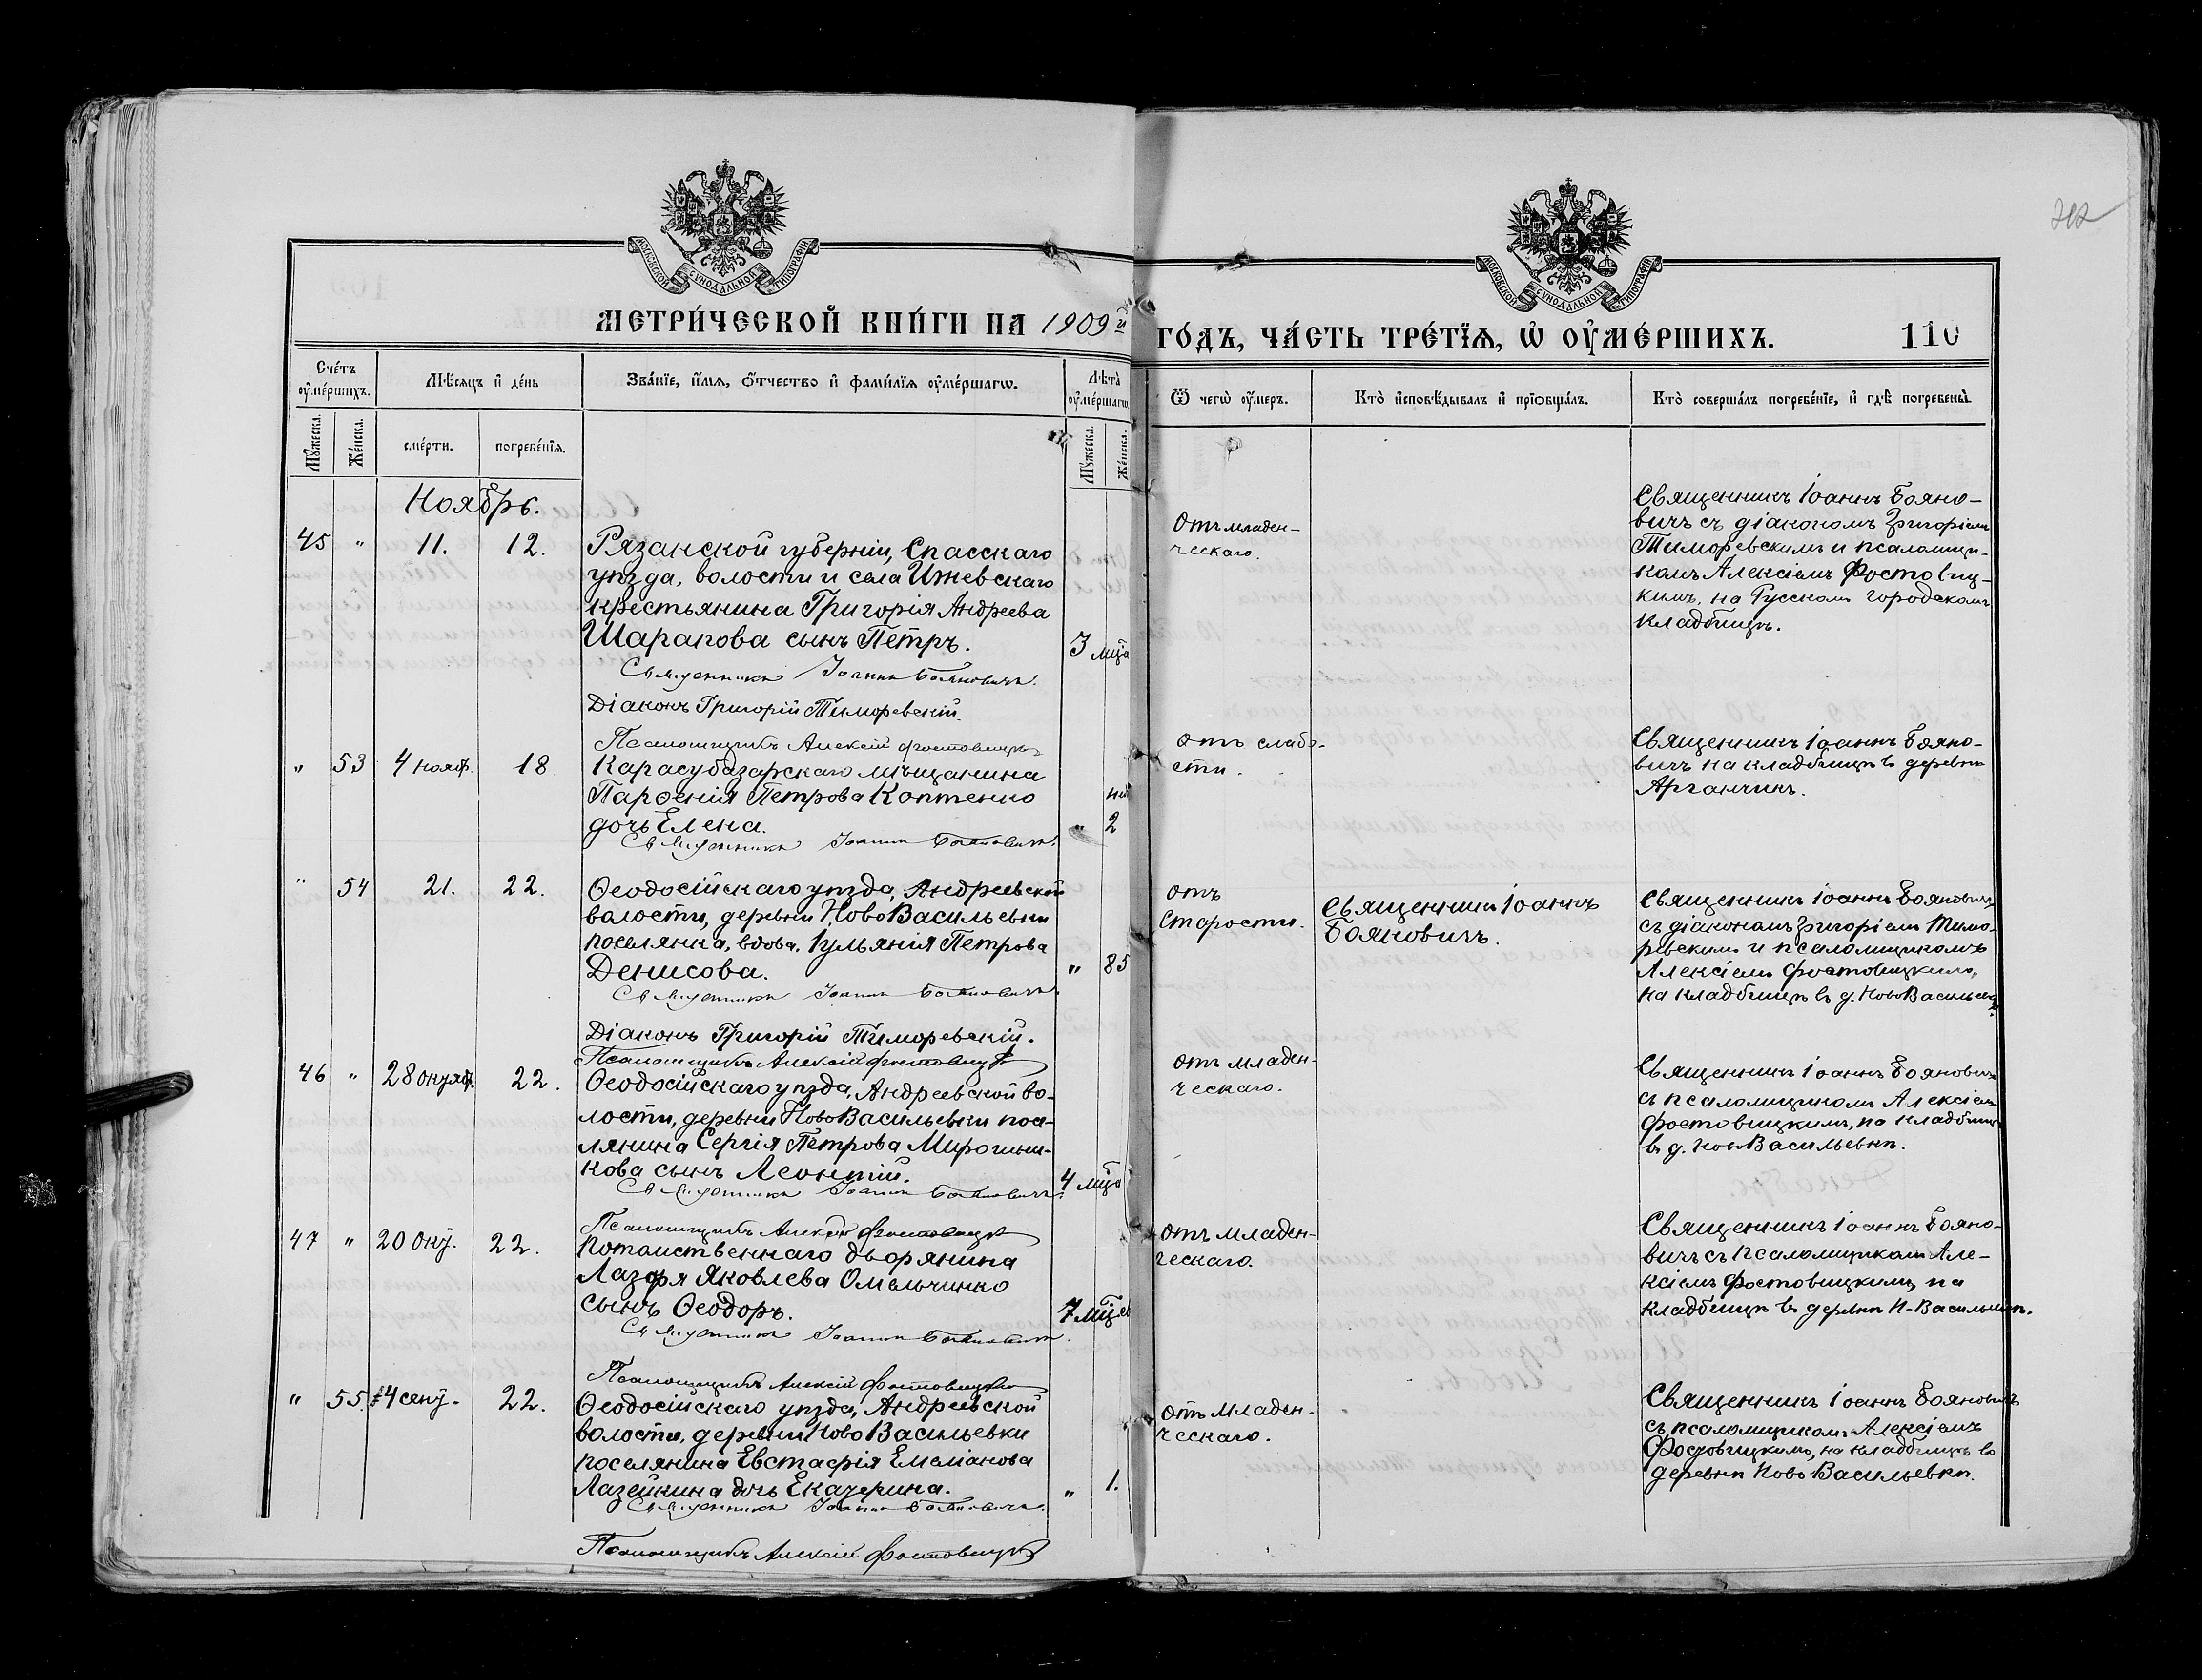 212
МОСКОВСКОЙ СѴНОДАЛЬНОЙ ТИПОГРАФІИ
МОСКОВСКОЙ СѴНОДАЛЬНОЙ ТИПОГРАФІИ
МЕТРИ́ЧЕСКОЙ КНИ́ГИ НА 1909й
ГО́ДЪ, ЧА́СТЬ ТРЕ́ТЇѦ, Ѡ҆ ОУ҆МЕ́РШИХЪ.
110
Сче́тъ оу҆ме́ршихъ.
Мѣ́сяцъ и҆ де́нь
Зва́нїе, и҆́мя, ѻ҆́тчество и҆ фами́лїя оу҆ме́ршагѡ.
Лѣта̀ оу҆ме́ршагѡ.
Ѿ чегѡ̀ оу҆́меръ.
Кто̀ и҆сповѣ́дывалъ и҆ прїѻбща́лъ.
Кто̀ соверша́лъ погребе́нїе, и҆ гдѣ̀ погребены̀.
Мꙋ́жеска.
Же́нска.
сме́рти.
погребе́нїя.
Мꙋ́жеска.
Же́нска.
Ноябрь.
45 " 11. 12.
Рязанской губерніи, Спасскаго
уѣзда, волости и села Ижевскаго
крестьянина Григорія Андреева
Шарапова сынъ Петръ.
3 мца
Священникъ Іоаннъ Бояновичъ.
Діаконъ Григорій Тиморевскій.
Псаломщикъ Алексій Фостовицкій
Отъ младен-
ческаго.
Священникъ Іоаннъ Бояно-
вичъ съ діакономъ Григоріемъ
Тиморевскимъ и псаломщи-
комъ Алексіемъ Фостовиц-
кимъ, на Русскомъ городскомъ
кладбищѣ.
" 53 4 нояб. 18
Карасубазарскаго мѣщанина
Парѳенія Петрова Коптенко
дочь Елена.
" 2
Священникъ Іоаннъ Бояновичъ.
Отъ слабо-
сти.
Священникъ Іоаннъ Бояно-
вичъ на кладбищѣ въ деревнѣ
Арганчикъ.
" 54 21. 22.
Ѳеодосійскаго уѣзда, Андреевской
волости, деревни Ново Васильевки
поселянка, вдова, Іульянія Петрова
Денисова.
" 85
Священникъ Іоаннъ Бояновичъ.
Діаконъ Григорій Тиморевскій.
Псаломщикъ Алексій Фостовицкій
Отъ
старости.
Священникъ Іоаннъ
Бояновичъ.
Священникъ Іоаннъ Бояновичъ
съ діакономъ Григоріемъ Тимо-
ревскимъ и псаломщикомъ
Алексіемъ Фостовицкимъ,
на кладбищѣ въ д. Ново Васильевкѣ.
46 " 28 октяб. 22.
Ѳеодосійскаго уѣзда, Андреевской во-
лости, деревни Ново Васильевки посе-
лянина Сергія Петрова Мирошни-
кова сынъ Леонтій.
4 мца
Священникъ Іоаннъ Бояновичъ.
Псаломщикъ Алексій Фостовицкій
Отъ младен-
ческаго.
Священникъ Іоаннъ Бояновичъ
съ псаломщикомъ Алексіемъ
Фостовицкимъ, на кладбищѣ
въ д. Ново Васильевкѣ.
47 " 20 окт. 22.
Потомственнаго дворянина
Лазаря Яковлева Омельченко
сынъ Ѳеодоръ.
7 мцев
Священникъ Іоаннъ Бояновичъ.
Псаломщикъ Алексій Фостовицкій
Отъ младен-
ческаго.
Священникъ Іоаннъ Бояно-
вичъ съ псаломщикомъ Але-
ксіемъ Фостовицкимъ, на
кладбищѣ въ деревнѣ Н-Васильевкѣ.
" 55. 24 сент. 22.
Ѳеодосійскаго уѣзда, Андреевской
волости, деревни Ново Васильевки
поселянина Евстафія Емеліанова
Лазейкина дочь Екатерина.
" 1.
Священникъ Іоаннъ Бояновичъ.
Псаломщикъ Алексій Фостовицкій
Отъ младен-
ческаго.
Священникъ Іоаннъ Бояновичъ
съ псаломщикомъ Алексіемъ
Фостовицкимъ, на кладбищѣ въ
деревнѣ Ново Васильевкѣ.